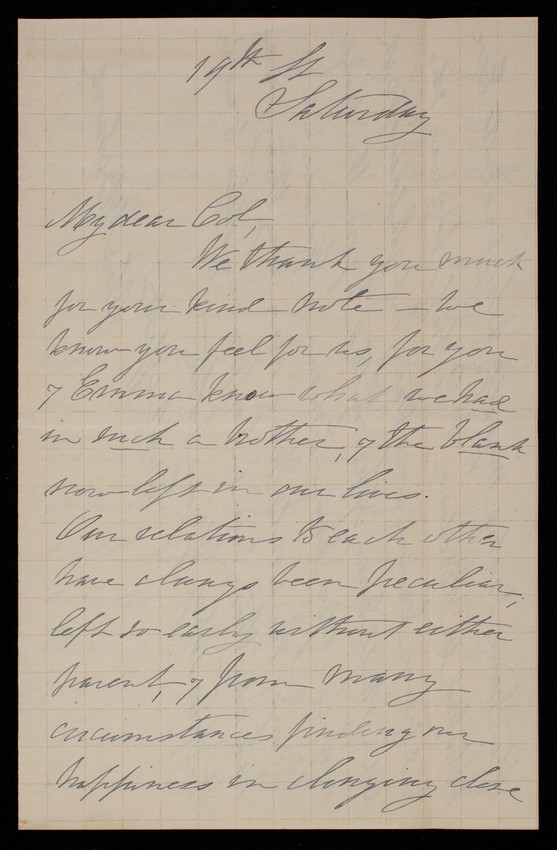 19th St
Saturday
My dear Col,
We thank you much
for your kind note - we
know you feel for us, for you
& Emma know what we had
in such a brother, & the blank
now left in our lives.
Our relations to each other
have always been peculiar,
left so early without either
parent, & from many
circumstances finding our
happiness in clinging close